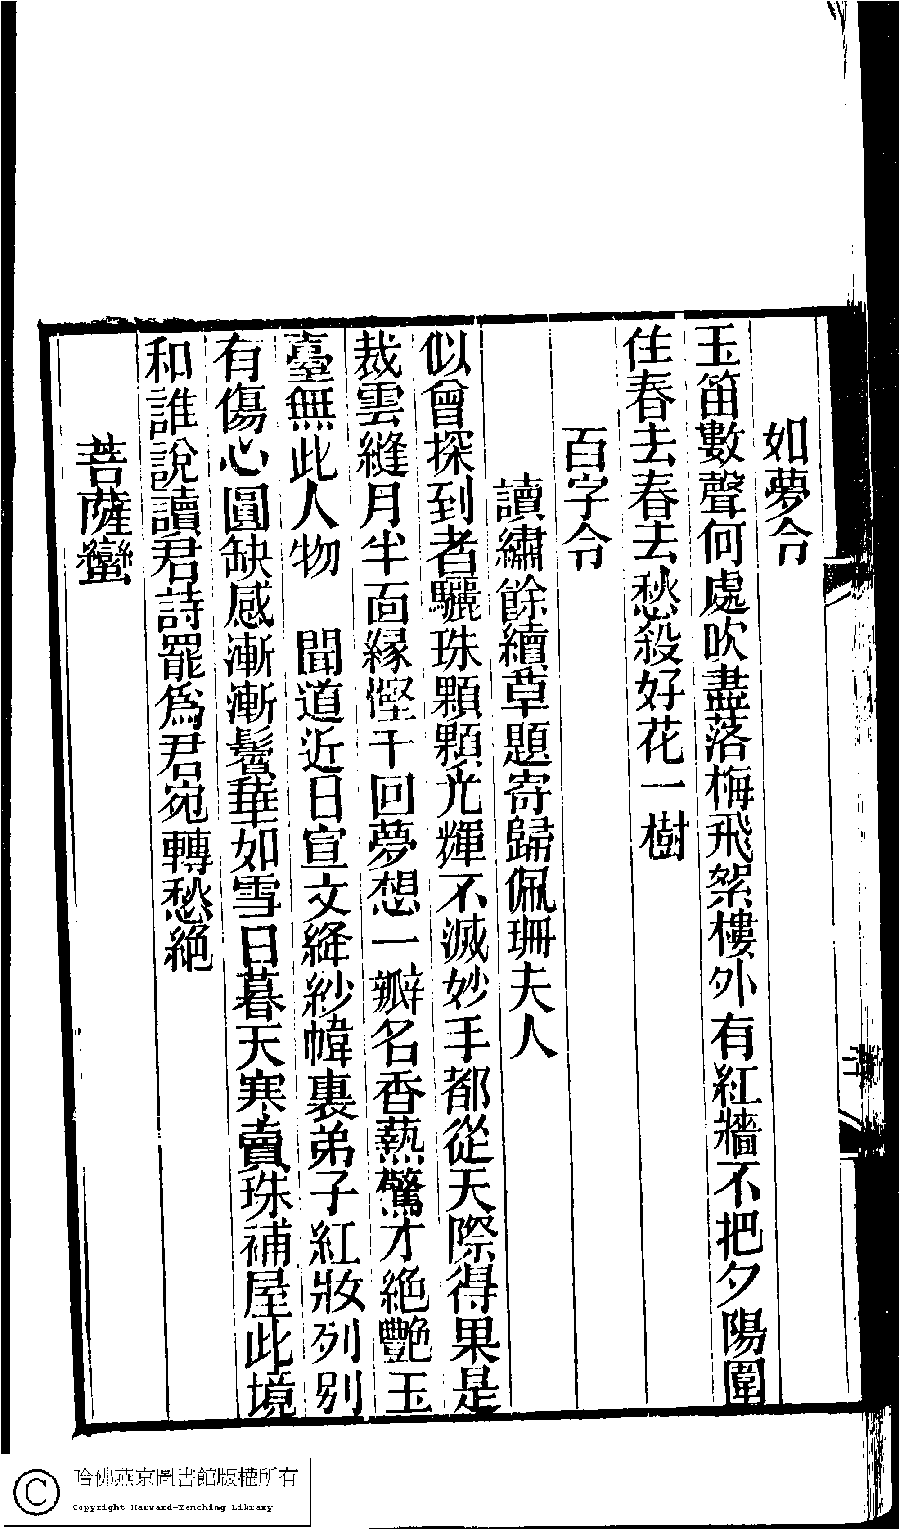 如夢令
玉笛數聲何處吹盡落梅飛絮樓外有紅牆不把夕陽圍
住春去春去愁殺好花一樹
百字令
讀繡餘續草題寄歸佩珊夫人
似曾探到者驪珠顆顆光輝不滅妙手都從天際得果是
裁雲縫月半面緣慳千回夢想一瓣名香爇驚才絕艷玉
臺無此人物　聞道近日宣文絳紗幃裏弟子紅妝列別
有傷心圓缺感漸漸鬢華如雪日暮天寒賣珠補屋此境
和誰說讀君詩罷爲君宛轉愁絕
菩薩蠻
哈佛燕京圖書館版權所有
Copyright Harvard-Yenching Library